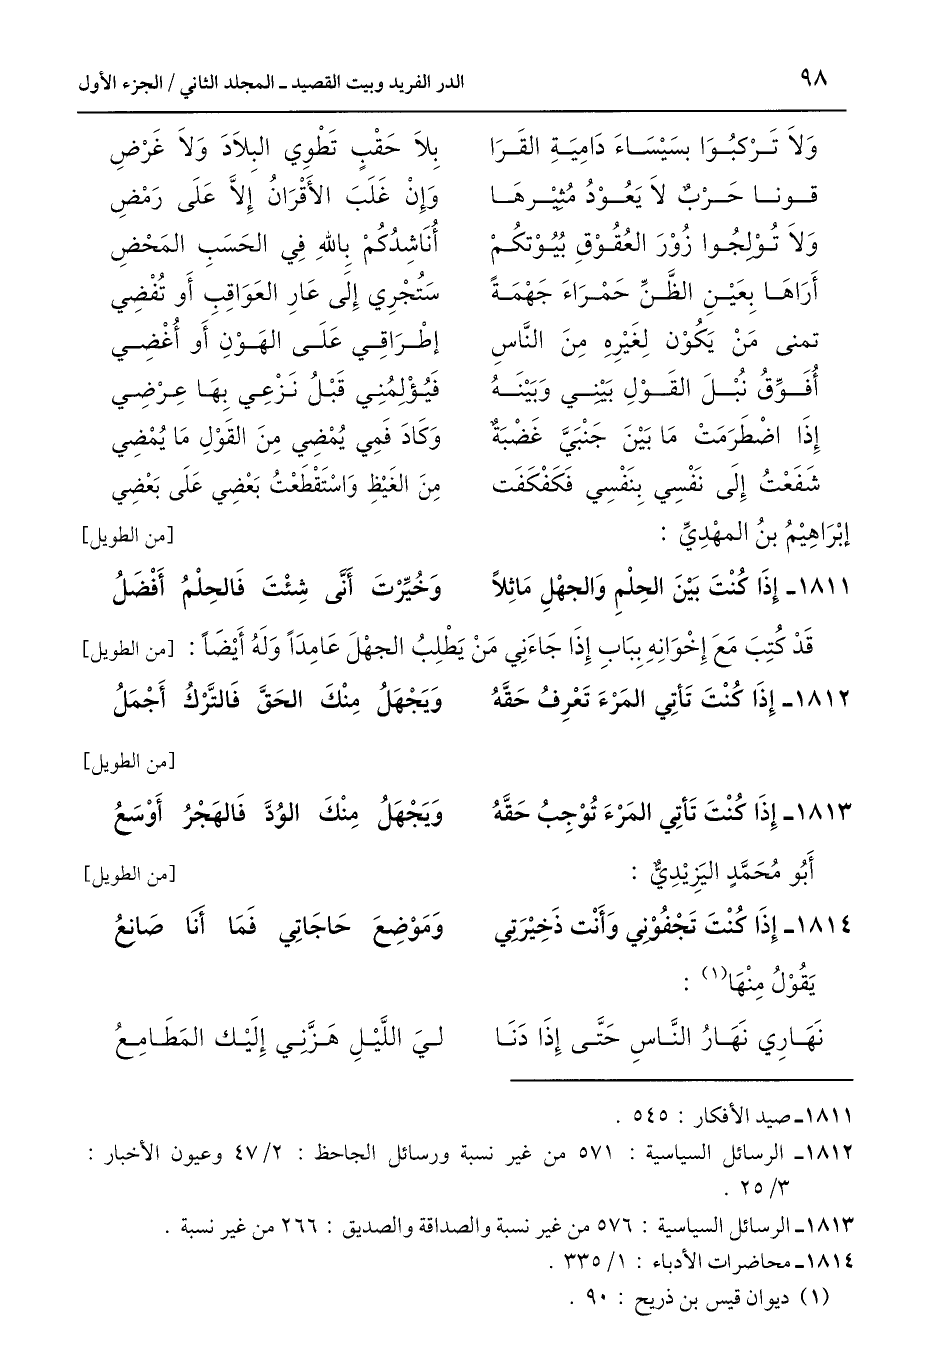 ٩٨ الدر الفريد وبيت القصيد ـ المجلد الثاني / الجزء الأول
وَلاَ تَـرْكبُـوَا بسَيْسَـاءَ دَاميَـةِ القَـرَا بِلاَ حَقْبٍ تَطْوِي البِلاَدَ وَلاَ غَرْضِ
قـونـا حَـرْبٌ لاَ يَعُـوْدُ مُثِيْـرهَـا وَإِنْ غَلَبَ الأَقْرَانُ إِلاَّ عَلَى رَمْضِ
وَلاَ تُـوْلِجُـوا زُوْرَ العُقُـوْقِ بيُـوْتكُـمْ أُنَاشِدُكُمْ بِاللهِ فِي الحَسَبِ المَحْضِ
أَرَاهَـا بِعَيْـنِ الظَّـنِّ حَمْـرَاءَ جَهْمَـةً سَتُجْرِي إِلَى عَارِ العَوَاقِبِ أَو تُفْضِي
تمنى مَنْ يَكوْن لِغَيْرِهِ مِنَ النَّاسِ إطْـرَاقِـي عَلَـى الهَـوْنِ أَو أُغْضِـي
أُفَـوِّقُ نُبْـلَ القَـوْلِ بَيْنِـي وَبَيْنَـهُ فَيُؤْلِمُنِي قَبْلُ نَـزْعِي بِهَـا عِـرْضِي
إِذَا اضْطَرَمَتْ مَا بَيْنَ جَنْبَيَّ غَضْبَةٌ وَكَادَ فَمِي يُمْضِي مِنَ القَوْلِ مَا يُمْضِي
شَفَعْتُ إِلَى نَفْسِي بِنَفْسِي فَكَفْكَفَت مِنَ الغَيْظِ وَاسْتَقْطَعْتُ بَعْضِي عَلَى بَعْضِي
إبْرَاهِيْمُ بنُ المهْدِيِّ : [من الطويل]
١٨١١ـ إِذَا كُنْتَ بَيْنَ الحِلْمِ وَالجهْلِ مَاثِلاً وَخُيِّرْتَ أَنَّى شِئْتَ فَالحِلْمُ أَفْضَلُ
قَدْ كُتِبَ مَعَ إِخْوَانِهِ بِبَابِ إِذَا جَاءَنِي مَنْ يَطْلِبُ الجهْلَ عَامِدَاً وَلَهُ أَيْضَاً : [من الطويل]
١٨١٢ـ إِذَا كُنْتَ تَأتِي المَرْءَ تَعْرِفُ حَقَّهُ وَيَجْهَلُ مِنْكَ الحَقَّ فَالتَّرْكُ أَجْمَلُ
[من الطويل]
١٨١٣ـ إِذَا كُنْتَ تَأتِي المَرْءَ تُوْجِبُ حَقَّهُ وَيَجْهَلُ مِنْكَ الوُدَّ فَالهَجْرُ أَوْسَعُ
أَبُو مُحَمَّدٍ اليَزِيْدِيُّ : [من الطويل]
١٨١٤ـ إِذَا كُنْتَ تَجْفُوْنِي وَأَنْت ذَخِيْرَتِي وَمَوْضِعَ حَاجَاتِي فَمَا أَنَا صَانِعُ
يَقُوْلُ مِنْهَا(١) :
نَهَـارِي نَهَـارُ النَّـاسِ حَتَّـى إِذَا دَنَـا لـيَ اللَّيْـلِ هَـزَّنِـي إِلَيْـك المَطَـامِـعُ
١٨١١ـ صيد الأفكار : ٥٤٥ .
١٨١٢ـ الرسائل السياسية : ٥٧١ من غير نسبة ورسائل الجاحظ : ٤٧/٢ وعيون الأخبار :
٢٥/٣ .
١٨١٣ـ الرسائل السياسية : ٥٧٦ من غير نسبة والصداقة والصديق : ٢٦٦ من غير نسبة .
١٨١٤ـ محاضرات الأدباء : ٣٣٥/١ .
(١) ديوان قيس بن ذريح : ٩٠ .